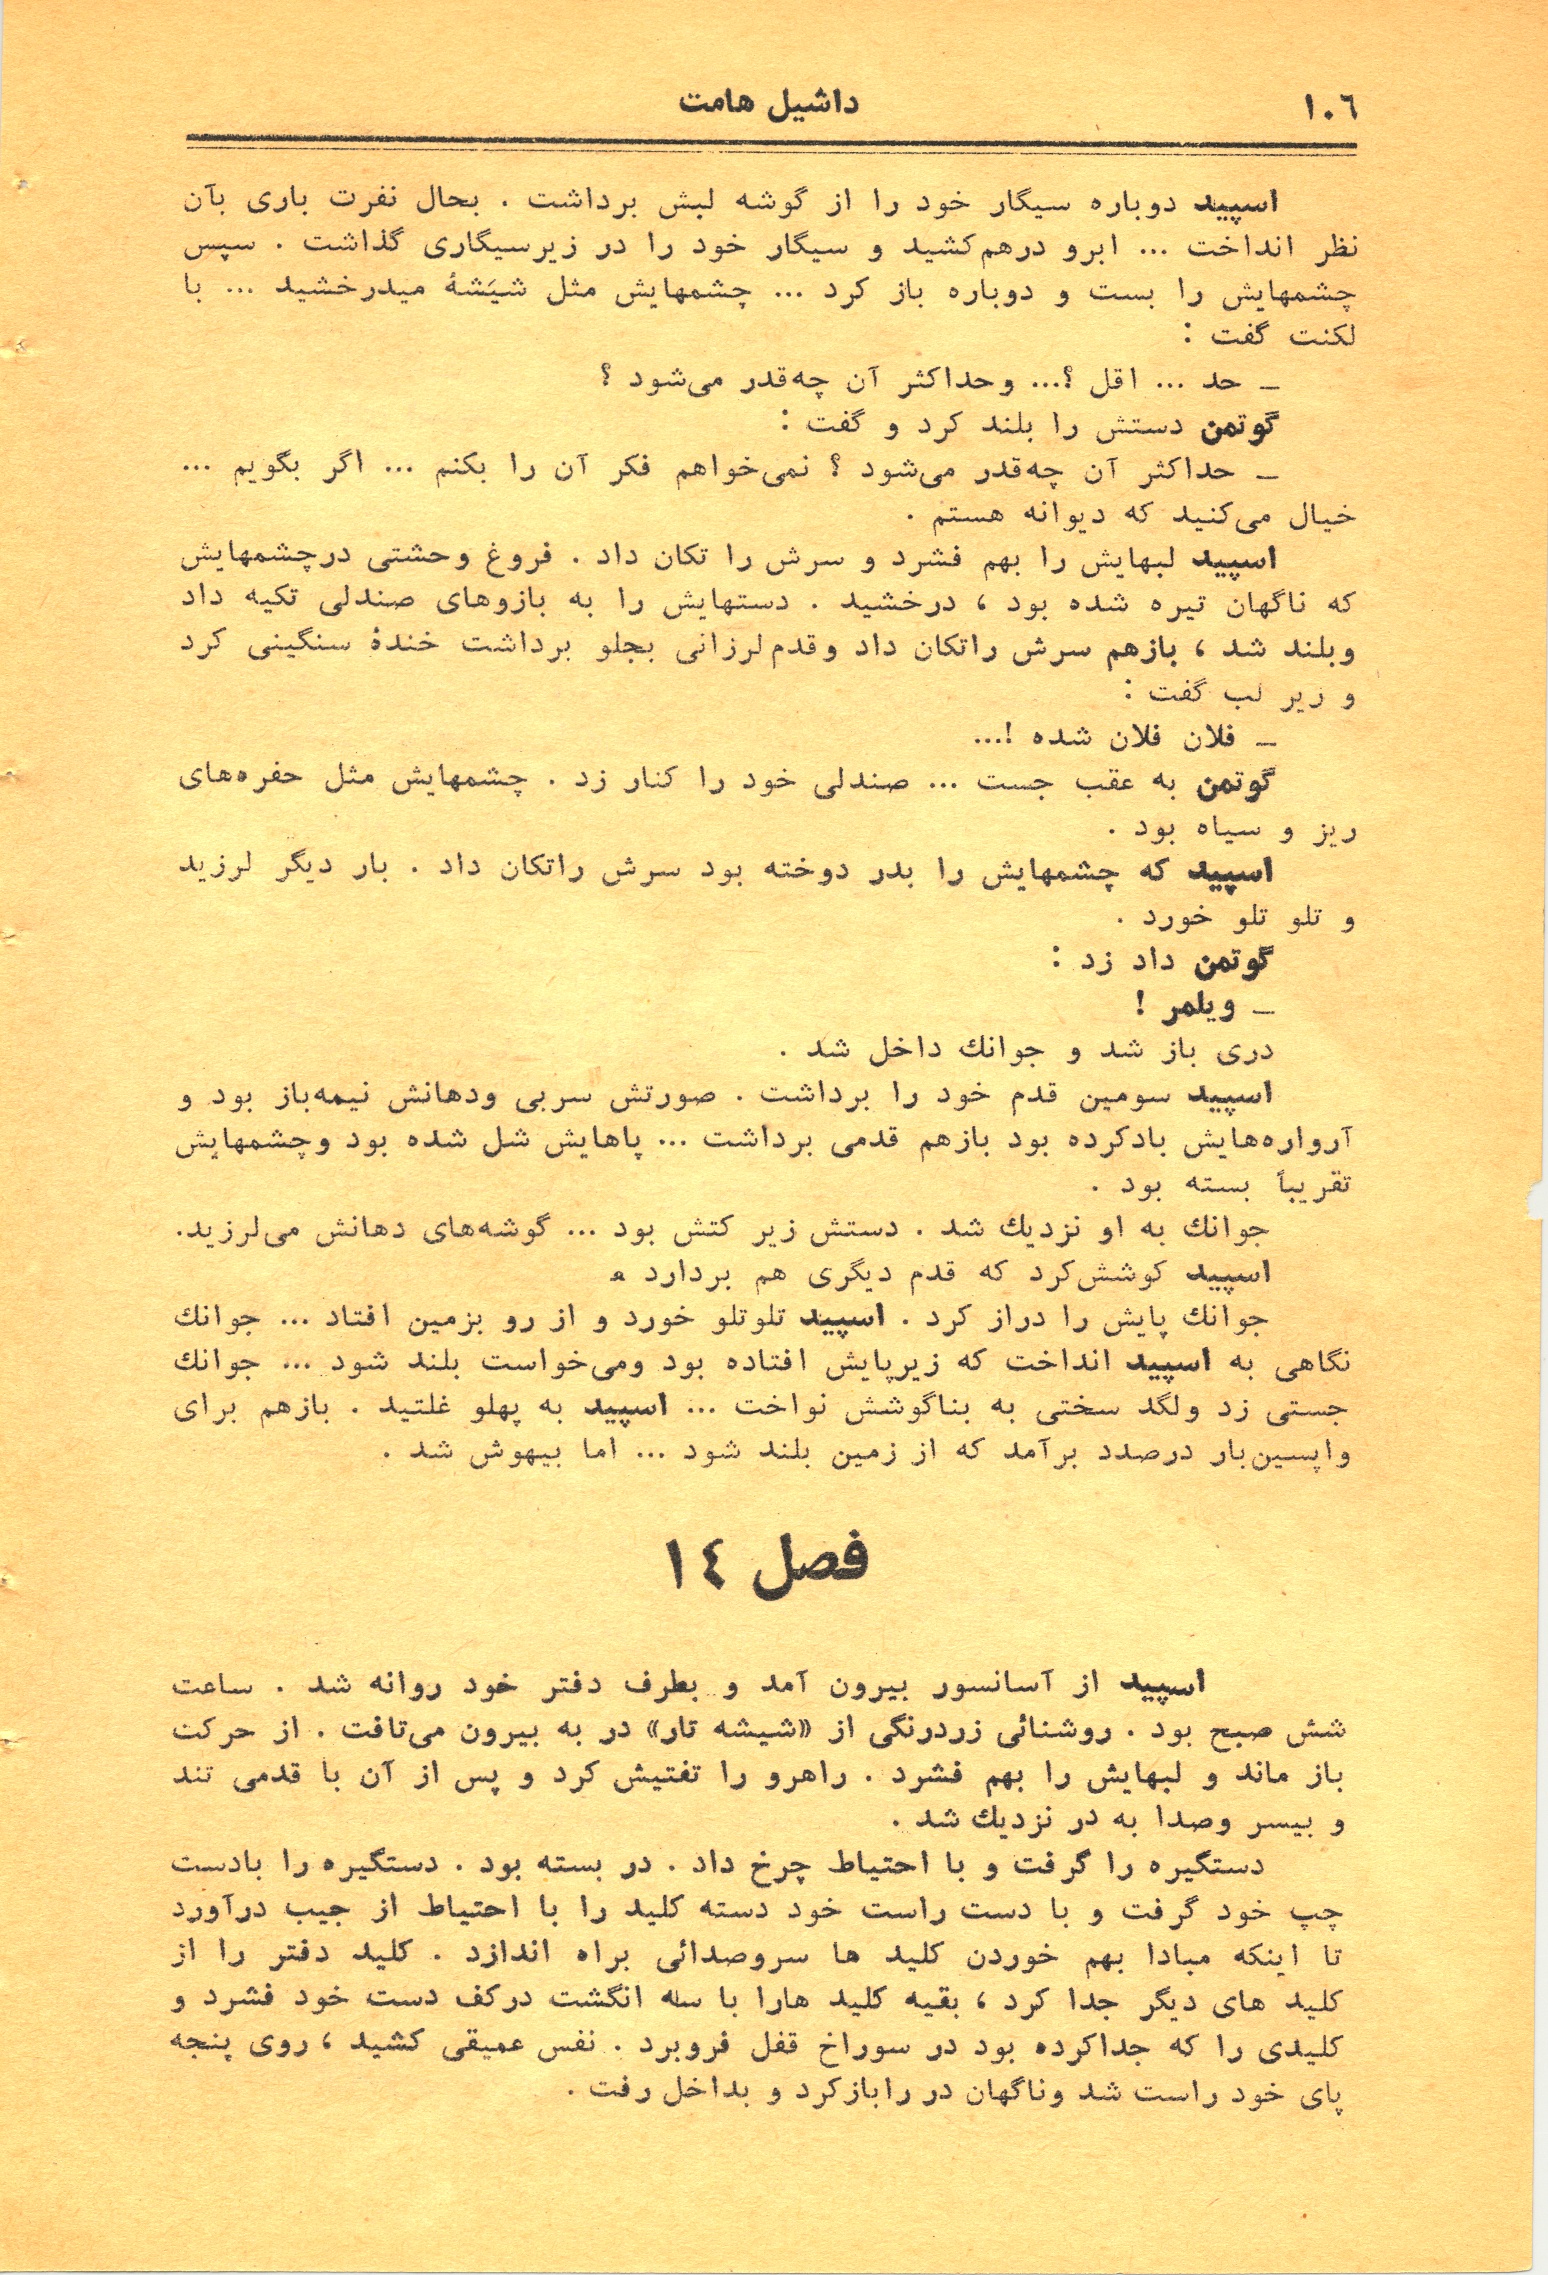 ١٠٦
داشیل هامت
اسپید دوباره سیگار خود را از گوشه لبش برداشت . بحال نفرت باری بآن
نظر انداخت ... ابرو درهم‌کشید و سیگار خود را در زیرسیگاری گذاشت . سپس
چشمهایش را بست و دوباره باز کرد ... چشمهایش مثل شیشهٔ میدرخشید ... با
لکنت گفت :
ـ حد ... اقل ؟... وحداکثر آن چه‌قدر می‌شود ؟
گوتمن دستش را بلند کرد و گفت :
ـ حداکثر آن چه‌قدر می‌شود ؟ نمی‌خواهم فکر آن را بکنم ... اگر بگویم ...
خیال می‌کنید که دیوانه هستم .
اسپید لبهایش را بهم فشرد و سرش را تکان داد . فروغ وحشتی درچشمهایش
که ناگهان تیره شده بود ، درخشید . دستهایش را به بازوهای صندلی تکیه داد
وبلند شد ، بازهم سرش راتکان داد وقدم‌لرزانی بجلو برداشت خندهٔ سنگینی کرد
و زیر لب گفت :
ـ فلان فلان شده !...
گوتمن به عقب جست ... صندلی خود را کنار زد . چشمهایش مثل حفره‌های
ریز و سیاه بود .
اسپید که چشمهایش را بدر دوخته بود سرش راتکان داد . بار دیگر لرزید
و تلو تلو خورد .
گوتمن داد زد :
ـ ویلمر !
دری باز شد و جوانك داخل شد .
اسپید سومین قدم خود را برداشت . صورتش سربی ودهانش نیمه‌باز بود و
آرواره‌هایش بادکرده بود بازهم قدمی برداشت ... پاهایش شل شده بود وچشمهایش
تقریباً بسته بود .
جوانك به او نزدیك شد . دستش زیر کتش بود ... گوشه‌های دهانش می‌لرزید.
اسپید کوشش‌کرد که قدم دیگری هم بردارد .
جوانك پایش را دراز کرد . اسپید تلوتلو خورد و از رو بزمین افتاد ... جوانك
نگاهی به اسپید انداخت که زیرپایش افتاده بود ومی‌خواست بلند شود ... جوانك
جستی زد ولگد سختی به بناگوشش نواخت ... اسپید به پهلو غلتید . بازهم برای
واپسین‌بار درصدد برآمد که از زمین بلند شود ... اما بیهوش شد .
فصل ١٤
اسپید از آسانسور بیرون آمد و بطرف دفتر خود روانه شد . ساعت
شش صبح بود . روشنائی زردرنگی از «شیشه تار» در به بیرون می‌تافت . از حرکت
باز ماند و لبهایش را بهم فشرد . راهرو را تفتیش کرد و پس از آن با قدمی تند
و بیسر وصدا به در نزدیك شد .
دستگیره را گرفت و با احتیاط چرخ داد . در بسته بود . دستگیره را بادست
چپ خود گرفت و با دست راست خود دسته کلید را با احتیاط از جیب درآورد
تا اینکه مبادا بهم خوردن کلید ها سروصدائی براه اندازد . کلید دفتر را از
کلید های دیگر جدا کرد ، بقیه کلید هارا با سه انگشت درکف دست خود فشرد و
کلیدی را که جداکرده بود در سوراخ قفل فروبرد . نفس عمیقی کشید ، روی پنجه
پای خود راست شد وناگهان در رابازکرد و بداخل رفت .